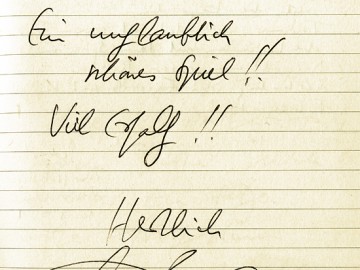 Ein unglaublich
schönes Spiel!!
Viel Erfolg!!
Herzlich